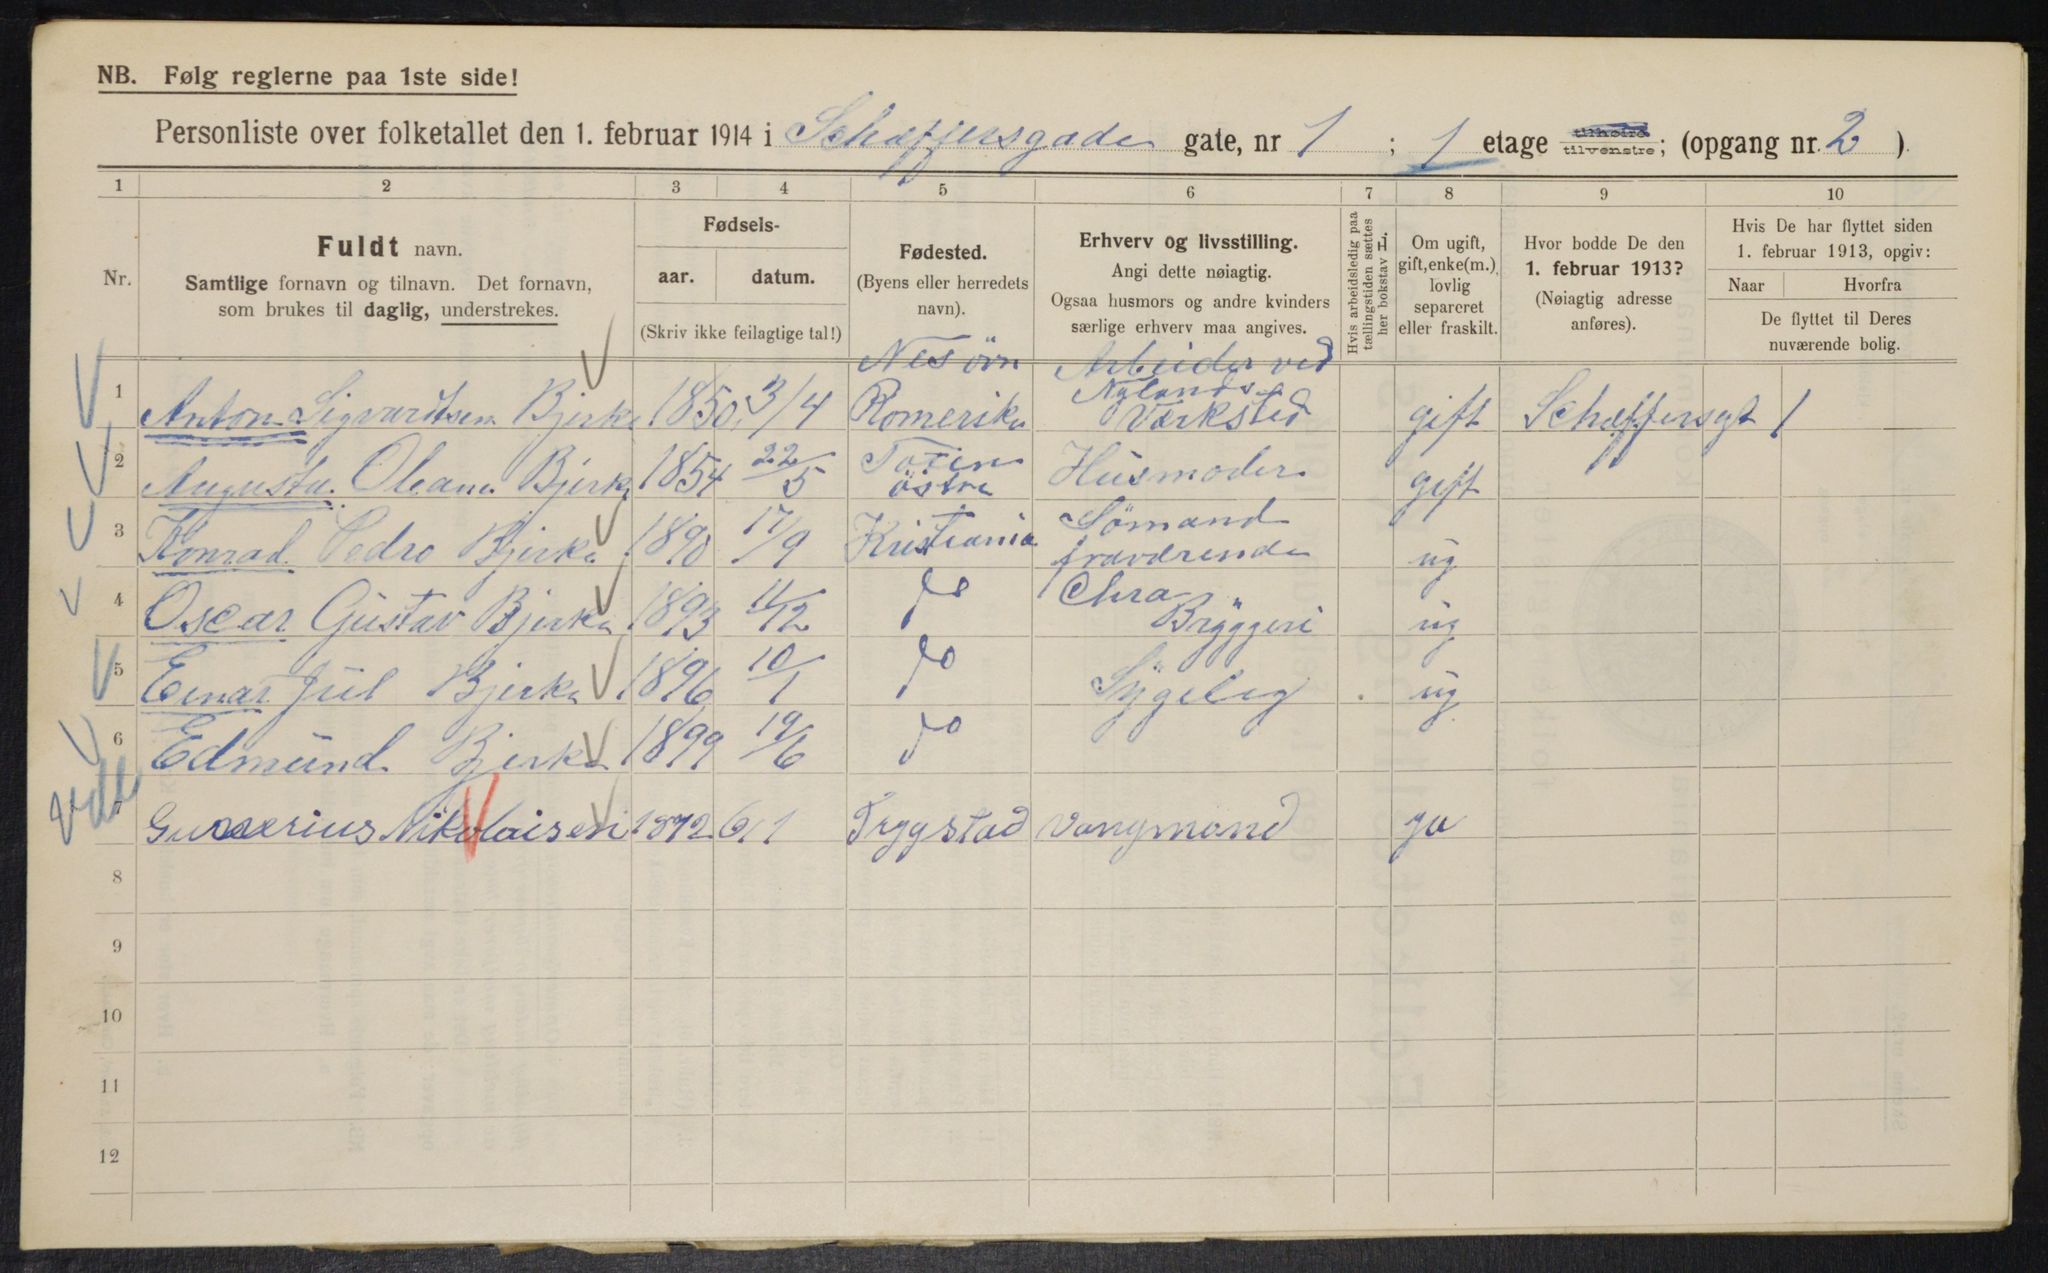 NB. Følg reglerne paa 1ste side!
Personliste over folketallet den 1. februar 1914 i Schæffersgade gate, nr 1 ; 1 etage tilhøire tilvenstre; (opgang nr. 2 ).
1 2 3 4 5 6 7 8 9 10
Nr.
Fuldt navn.
Samtlige fornavn og tilnavn. Det fornavn,
som brukes til daglig, understrekes.
Fødsels-
aar. datum.
(Skriv ikke feilagtige tal!)
Fødested.
(Byens eller herredets
navn).
Erhverv og livsstilling.
Angi dette nøiagtig.
Ogsaa husmors og andre kvinders
særlige erhverv maa angives.
Hvis arbeidsledig paa
tællingstiden sættes
her bokstav L.
Om ugift,
gift, enke(m.),
lovlig
separeret
eller fraskilt.
Hvor bodde De den
1. februar 1913?
(Nøiagtig adresse
anføres).
Hvis De har flyttet siden
1. februar 1913, opgiv:
Naar Hvorfra
De flyttet til Deres
nuværende bolig.
1 Anton Sigvardtsen Bjerke 1850 3/4 Nes övn Romerike Arbeider ved Nylands Værksted gift Schæffersgt 1
2 Augusta Oleana Bjerke 1854 22/5 Toten östre Husmoder gift
3 Konrad Pedro Bjerke 1890 17/9 Kristiania Sömand fraværende ug
4 Oscar Gustav Bjerke 1893 11/12 do Chra Bryggeri ug
5 Einar Jul Bjerke 1896 10/1 do Sygelig ug
6 Edmund Bjerke 1899 19/6 do
7 Nikolaisen 1872 6/1 Trygstad Vongmand ja
8
9
10
11
12